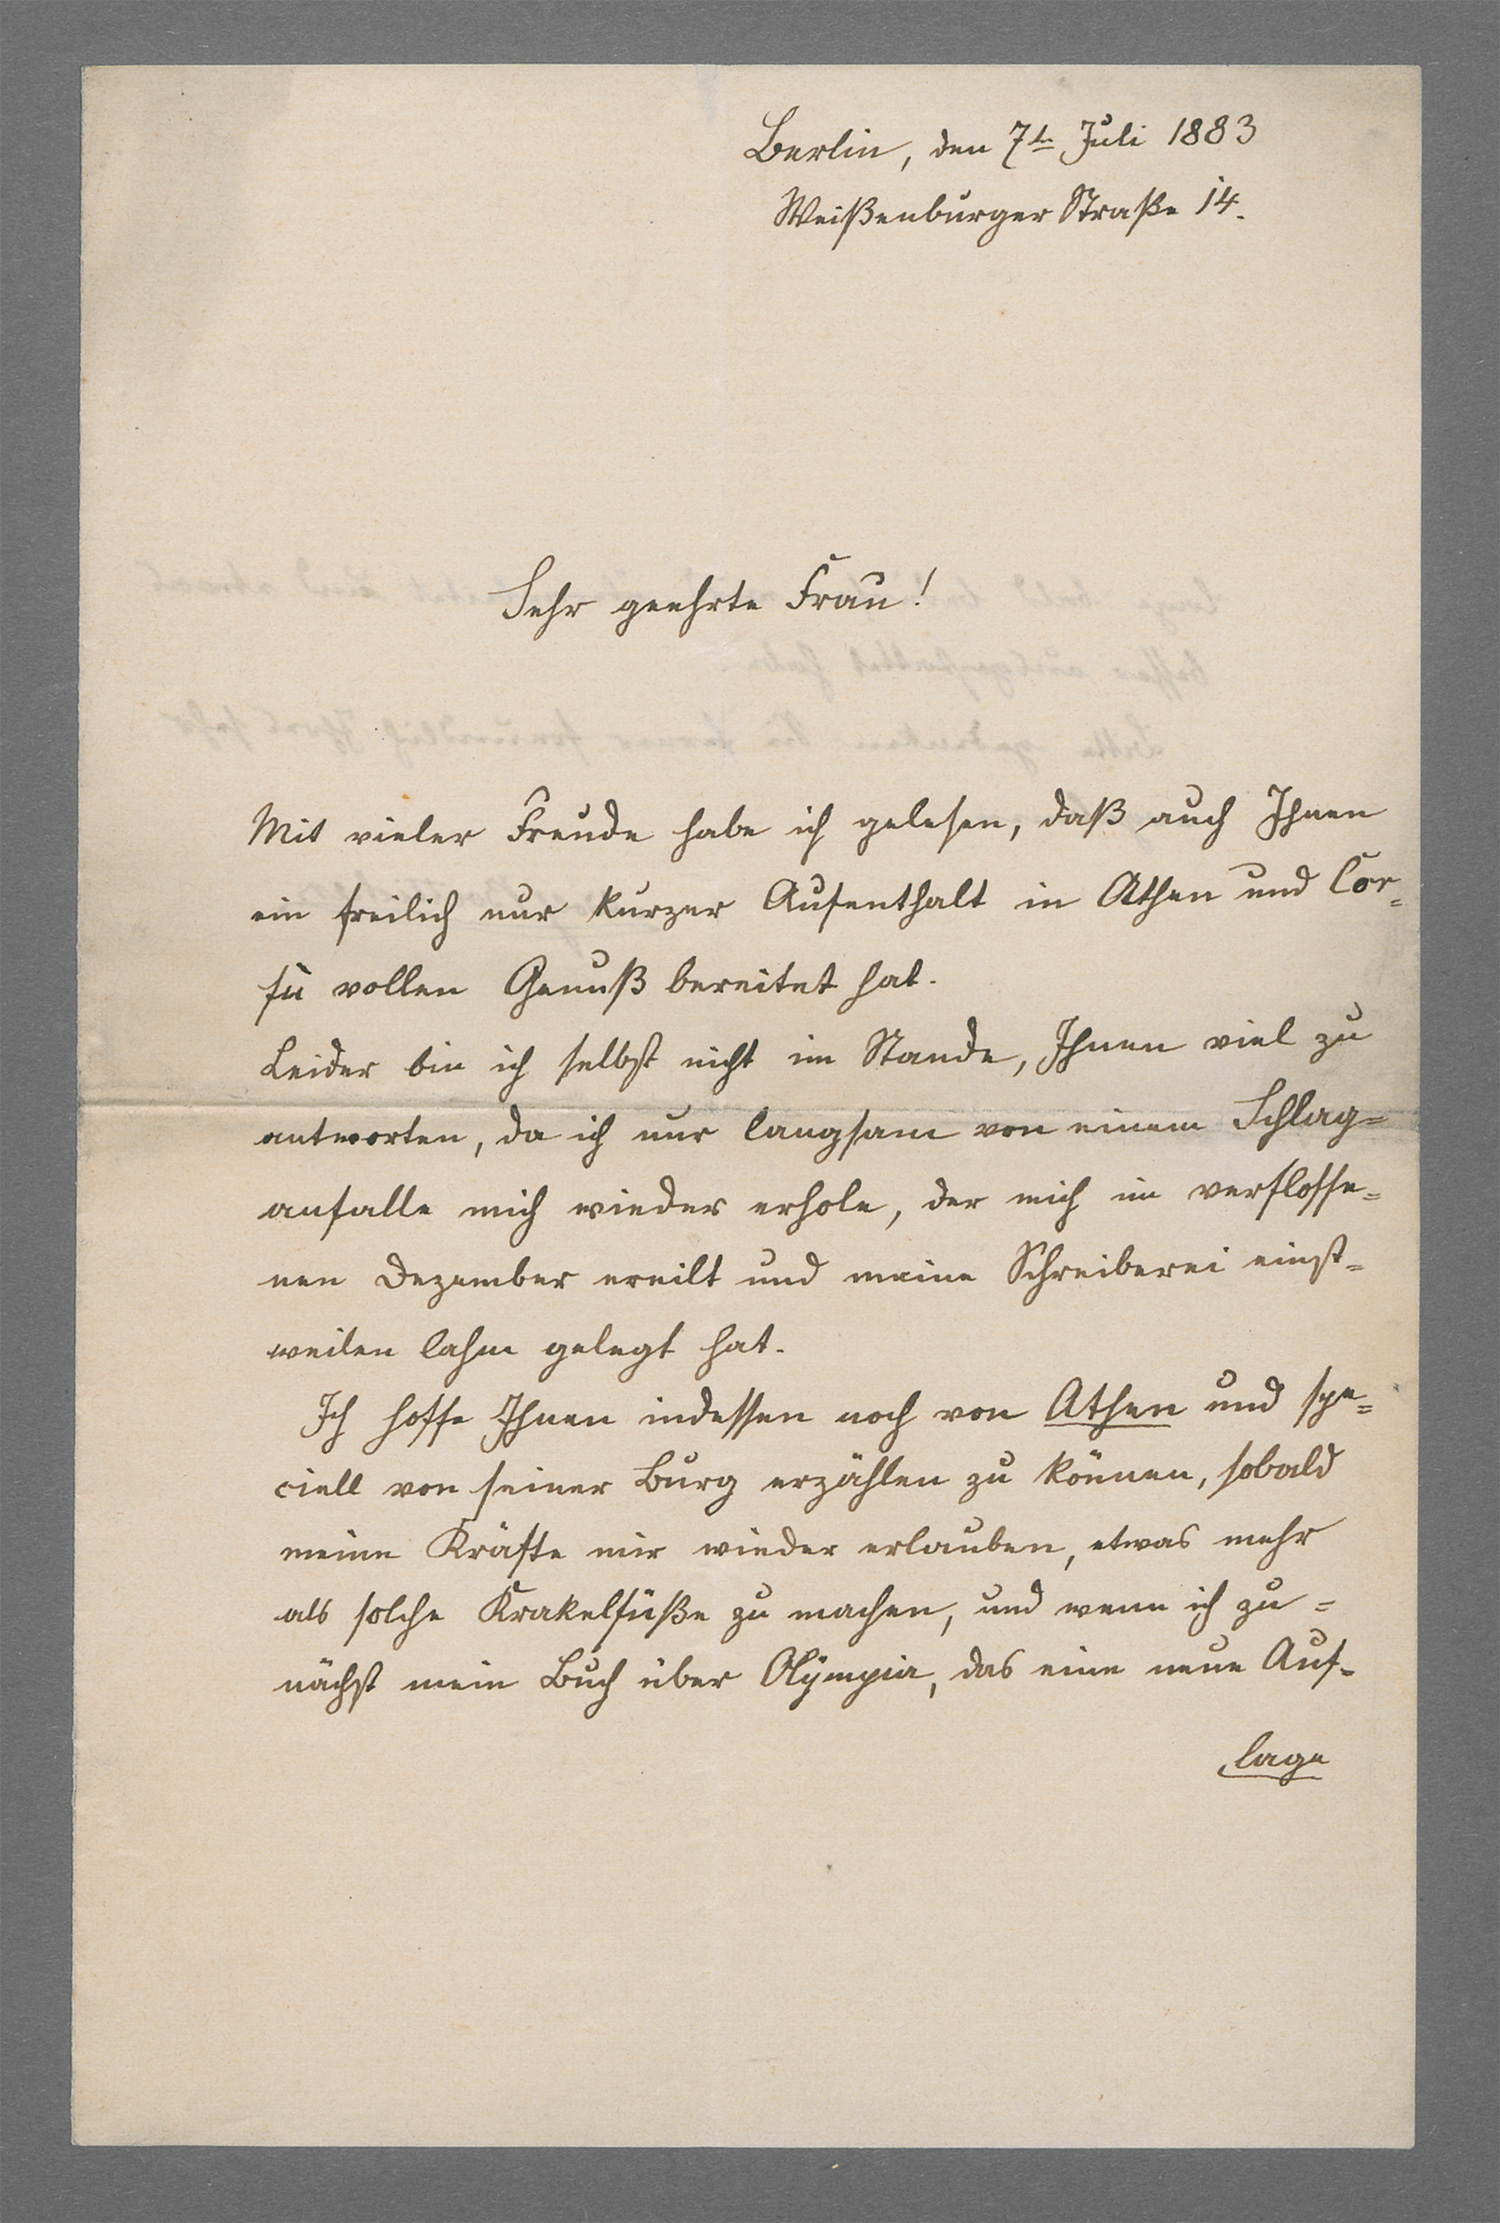 Berlin, den 7t. Juli 1883
Weißenburger Straße 14.
Sehr geehrte Frau!
Mit vieler Freude habe ich gelesen, daß auch Ihnen
ein freilich nur kurzer Aufenthalt in Athen und Cor=
fu vollen Genuß bereitet hat.
Leider bin ich selbst nicht im Stande, Ihnen viel zu
antworten, da ich nur langsam von einem Schlag=
anfalle mich wieder erhole, der mich im verflosse=
nen Dezember ereilt und meine Schreiberei einst=
weilen lahm gelegt hat.
Ich hoffe Ihnen indessen noch von Athen und spe=
ciell von seiner Burg erzählen zu können, sobald
meine Kräfte mir wieder erlauben, etwas mehr
als solche Krakelfüße zu machen, und wenn ich zu=
nächst mein Buch über Olympia, das eine neue Auf=
lage